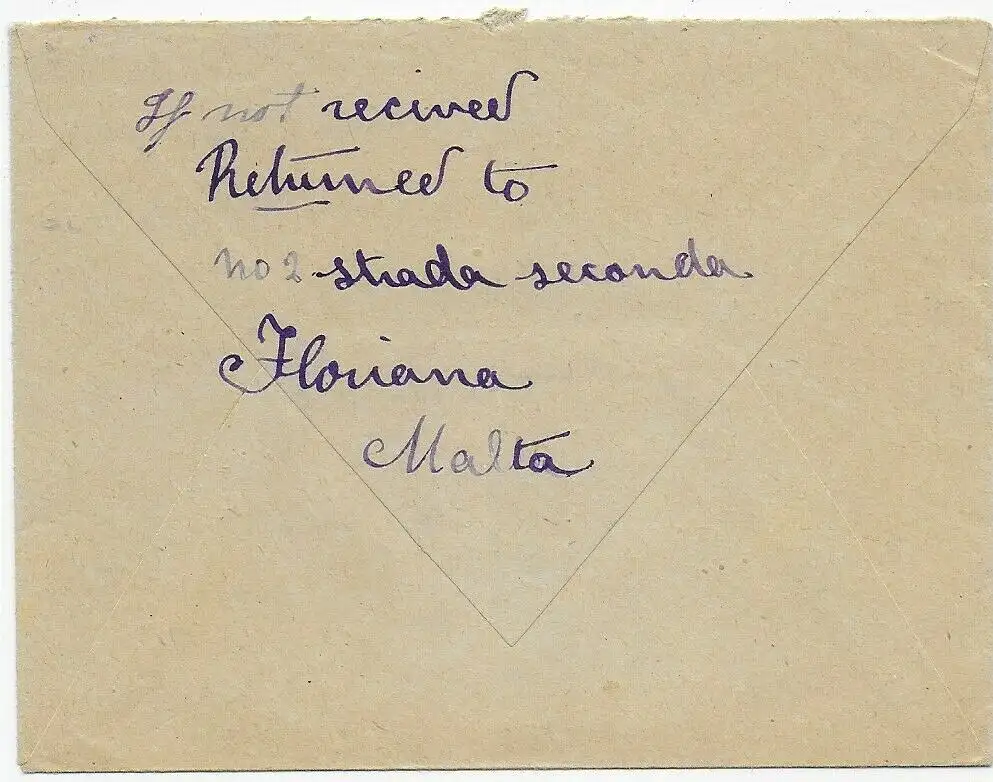 If not recived
Returned to
No 2 strada seconda
Floriana
Malta